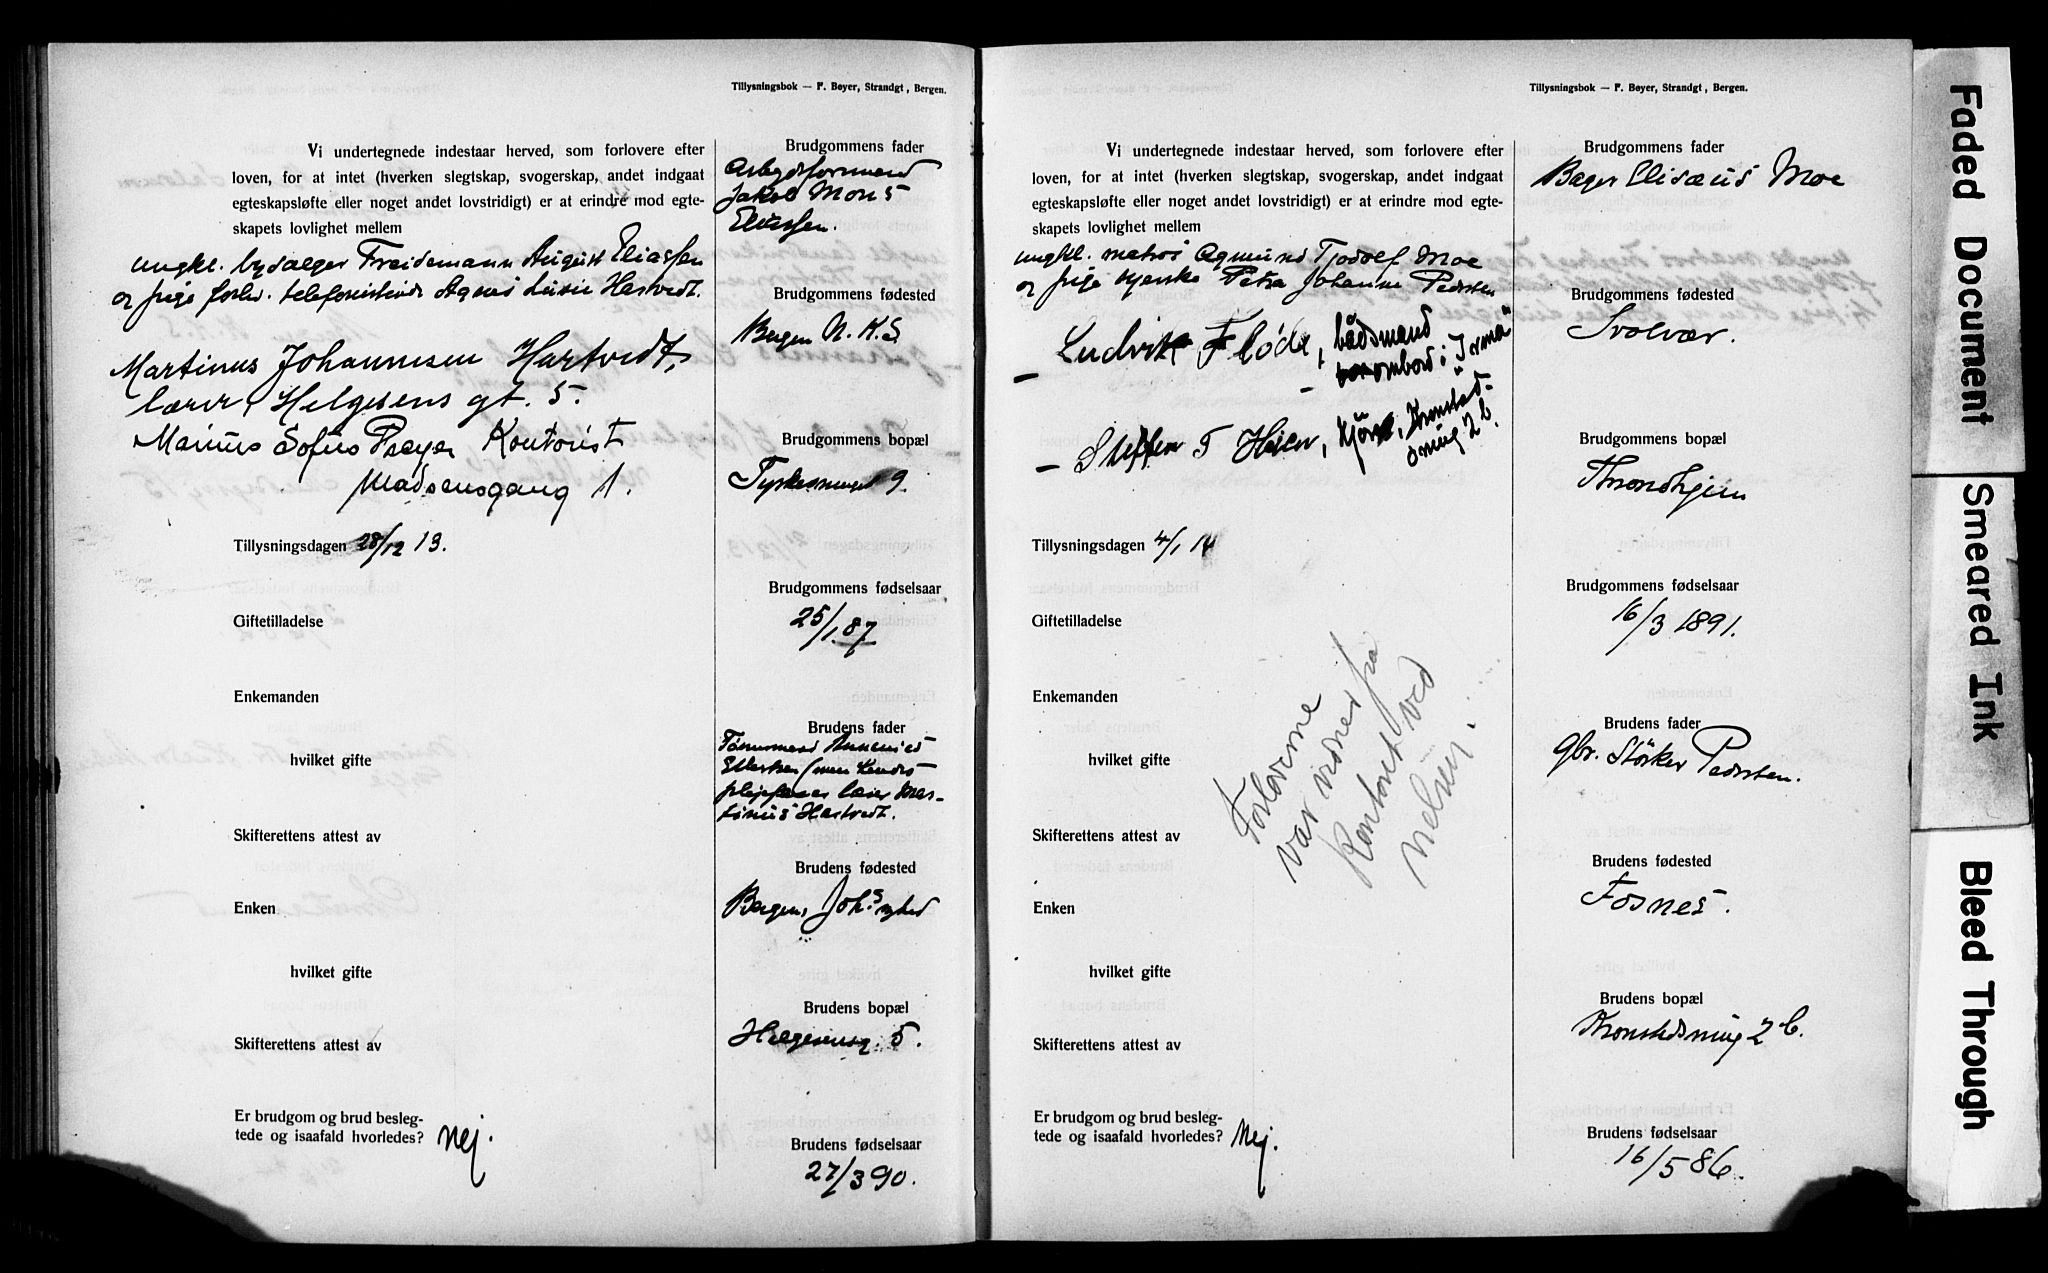 Tillysningsbok — F. Bøyer, Strandgt, Bergen.
Vi undertegnede indestaar herved, som forlovere efter
loven, for at intet (hverken slegtskap, svogerskap, andet indgaat
egteskapsløfte eller noget andet lovstridigt) er at erindre mod egte-
skapets lovlighet mellem
ungkl. Freidemann August Eliassen
og pige Agnes Hartvedt.
Martinus Johannesen Hartvedt,
lærer, Helgesens gt. 5.
Marius Sofus Kontorist
Madsensgang 1.
Tillysningsdagen 28/12 13.
Giftetilladelse
Enkemanden
hvilket gifte
Skifterettens attest av
Enken
hvilket gifte
Skifterettens attest av
Er brudgom og brud besleg-
tede og isaafald hvorledes? Nej.
Brudgommens fader
Arbeidsformand
Jakob Mons
Eliassen.
Brudgommens fødested
Bergen N. K. S
Brudgommens bopæl
9.
Brudgommens fødselsaar
25/1 87
Brudens fader
Ellertsen (men Kendes
lærer Mar-
tinus Hartvedt.
Brudens fødested
Bergen, Johs
Brudens bopæl
Helgesensg. 5.
Brudens fødselsaar
27/3 90.
Tillysningsbok — F. Bøyer, Strandgt, Bergen.
Vi undertegnede indestaar herved, som forlovere efter
loven, for at intet (hverken slegtskap, svogerskap, andet indgaat
egteskapsløfte eller noget andet lovstridigt) er at erindre mod egte-
skapets lovlighet mellem
ungkl. matros Agmund Tjodolf Moe
og pige Petra Johanne Pedersen
— Ludvik Fløde, bådsmand
ombord i "Irma"
— Steffen T Heien, Kronstad-
ning 2 b.
Tillysningsdagen 4/1 14
Giftetilladelse
Enkemanden
hvilket gifte
Skifterettens attest av
Enken
hvilket gifte
Skifterettens attest av
Forloverne
var vidner fra
Kontoret ved
Er brudgom og brud besleg-
tede og isaafald hvorledes? Nej.
Brudgommens fader
Bager Elisæus Moe
Brudgommens fødested
Svolvær.
Brudgommens bopæl
Throndhjem
Brudgommens fødselsaar
16/3 1891.
Brudens fader
gbr. Størker Pedersen.
Brudens fødested
Fosnes.
Brudens bopæl
Kronstadsning 2 b.
Brudens fødselsaar
16/5 86.
Faded Document
Smeared Ink
Bleed Through